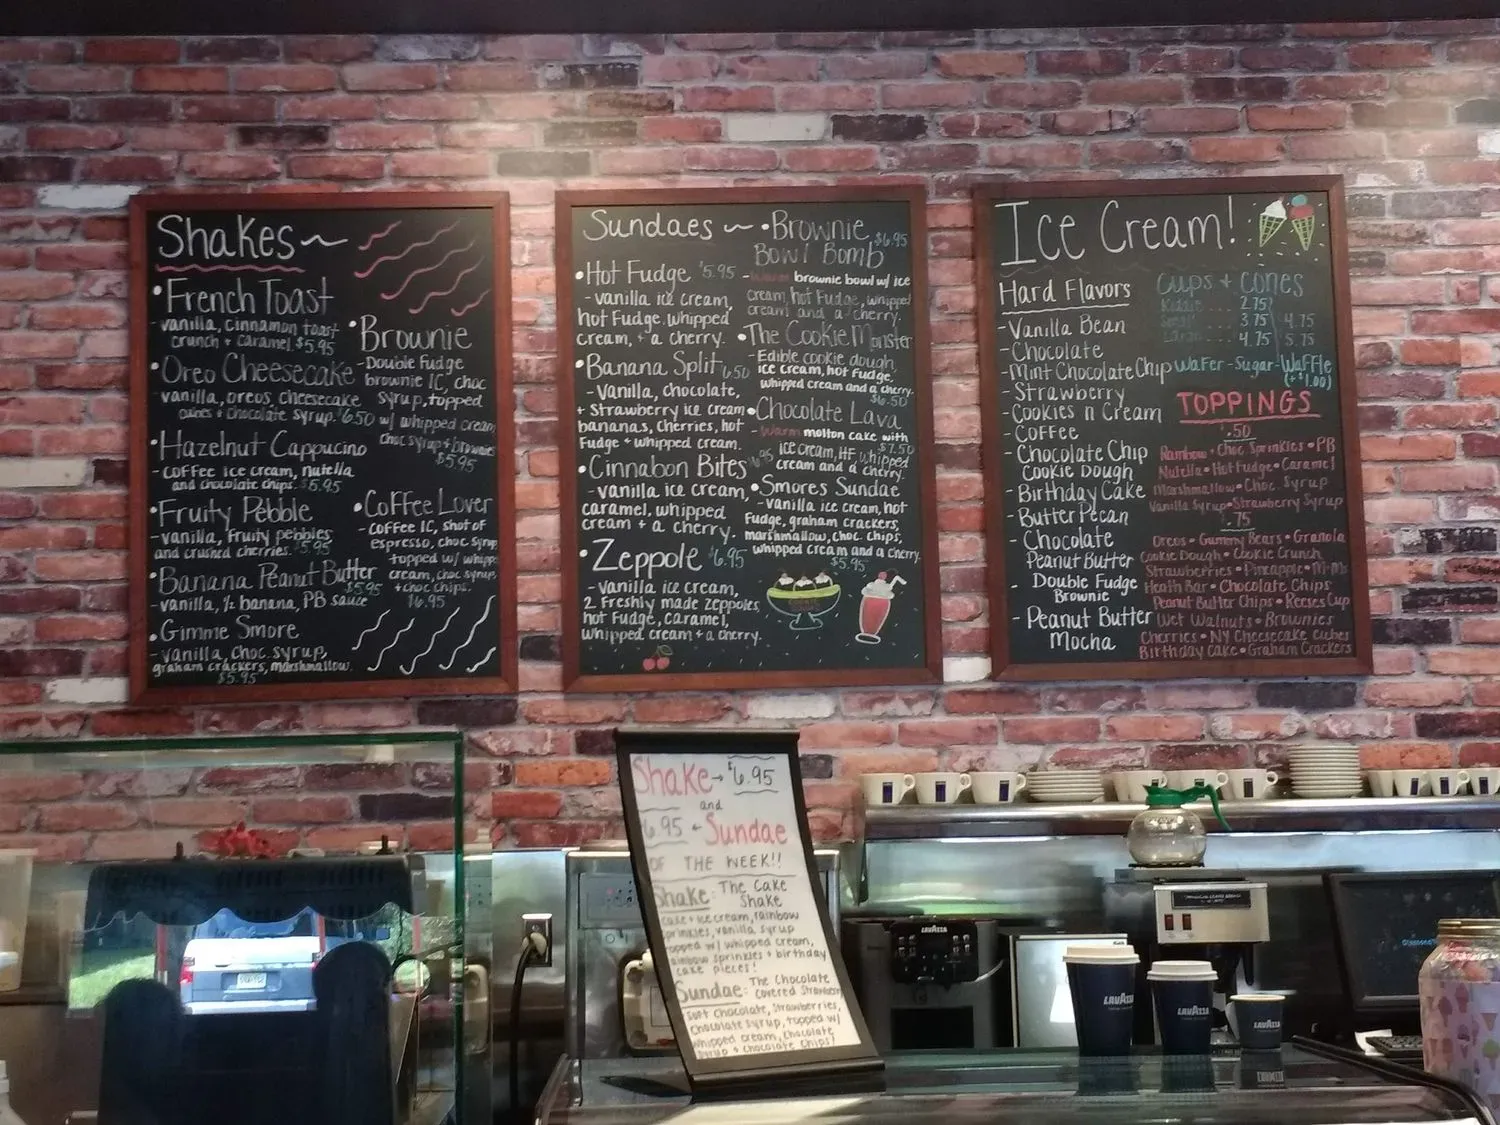 Shakes~
•French Toast
-vanilla, cinnamon toast
crunch + caramel $5.95
•Oreo Cheesecake
-vanilla, oreos, cheesecake
cubes + chocolate syrup. $6.50
•Hazelnut Cappucino
-coffee ice cream, nutella
and chocolate chips. $5.95
•Fruity Pebble
-vanilla, fruity pebbles
and crushed cherries. $5.95
•Banana Peanut Butter
$5.95
-vanilla, ½ banana, PB sauce
•Gimme Smore
-vanilla, choc syrup,
graham crackers, marshmallow.
$5.95
•Brownie
-Double Fudge
brownie IC, choc
syrup, topped
w/ whipped cream
choc syrup + brownies
$5.95
•Coffee Lover
-coffee IC, shot of
espresso, choc syrup
topped w/ whipp
cream, choc syrup,
+ choc chips.
$6.95
Sundaes ~
•Hot Fudge $5.95
-vanilla ice cream,
hot fudge, whipped
cream, + a cherry.
•Banana Split 6.50
-Vanilla, chocolate,
+ strawberry ice cream
bananas, cherries, hot
fudge + whipped cream.
•Cinnabon Bites $6.95
-vanilla ice cream,
caramel, whipped
cream + a cherry.
•Zeppole $6.95
-vanilla ice cream,
2 freshly made zeppoles,
hot fudge, caramel,
whipped cream + a cherry.
•Brownie $6.95
Bowl Bomb
-warm brownie bowl w/ ice
cream, hot fudge, whipped
cream and a cherry.
•The Cookie Monster
-Edible cookie dough,
ice cream, hot fudge,
whipped cream and a cherry.
$6.50
•Chocolate Lava
-warm molton cake with
$7.50
ice cream, HF, whipped
cream and a cherry.
•Smores Sundae
-vanilla ice cream, hot
fudge, graham crackers,
marshmallow, choc. chips,
whipped cream and a cherry.
$5.95
Ice Cream!
Hard Flavors
-Vanilla Bean
-Chocolate
-Mint Chocolate Chip
-Strawberry
-Cookies n Cream
-Coffee
-Chocolate Chip
Cookie Dough
-Birthday Cake
-Butter Pecan
-Chocolate
Peanut Butter
-Double Fudge
Brownie
-Peanut Butter
Mocha
Cups + Cones
Kiddie ... 2.75
Small ... 3.75 4.75
Large ... 4.75 5.75
Wafer-Sugar-Waffle
(+$1.00)
TOPPINGS
.50
Rainbow • Choc Sprinkles • PB
Nutella • Hot Fudge • Caramel
Marshmallow • Choc. Syrup
Vanilla Syrup • Strawberry Syrup
.75
Oreos • Gummy Bears • Granola
Cookie Dough • Cookie Crunch
Strawberries • Pineapple • M+Ms
Heath Bar • Chocolate Chips
Peanut Butter Chips • Reeses Cup
Wet Walnuts • Brownies
Cherries • NY Cheesecake Cubes
Birthday Cake • Graham Crackers
Shake→ $6.95
and
6.95 ← Sundae
OF THE WEEK!!
Shake: The Cake
Shake
cake + ice cream, rainbow
sprinkles, vanilla syrup
topped w/ whipped cream,
rainbow sprinkles + birthday
cake pieces!
Sundae: The Chocolate
Covered Strawberry
soft chocolate, strawberries,
chocolate syrup, topped w/
whipped cream, chocolate
syrup + chocolate chips!
LAVAZZA
LAVAZZA
LAVAZZA
LAVAZZA